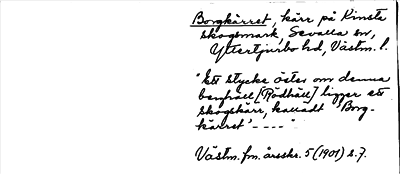 Borgkärret, kärr på Kinsta
skogsmark, Sevalla sn,
Yttertjurbo hd, Västm. l.
"Ett stycke öster om denna
berghäll [Rödhäll] ligger ett
skogskärr, kalladt 'Borg-
kärret' - - - -"
Västm. fm. årsskr. 5 (1901) s. 7.